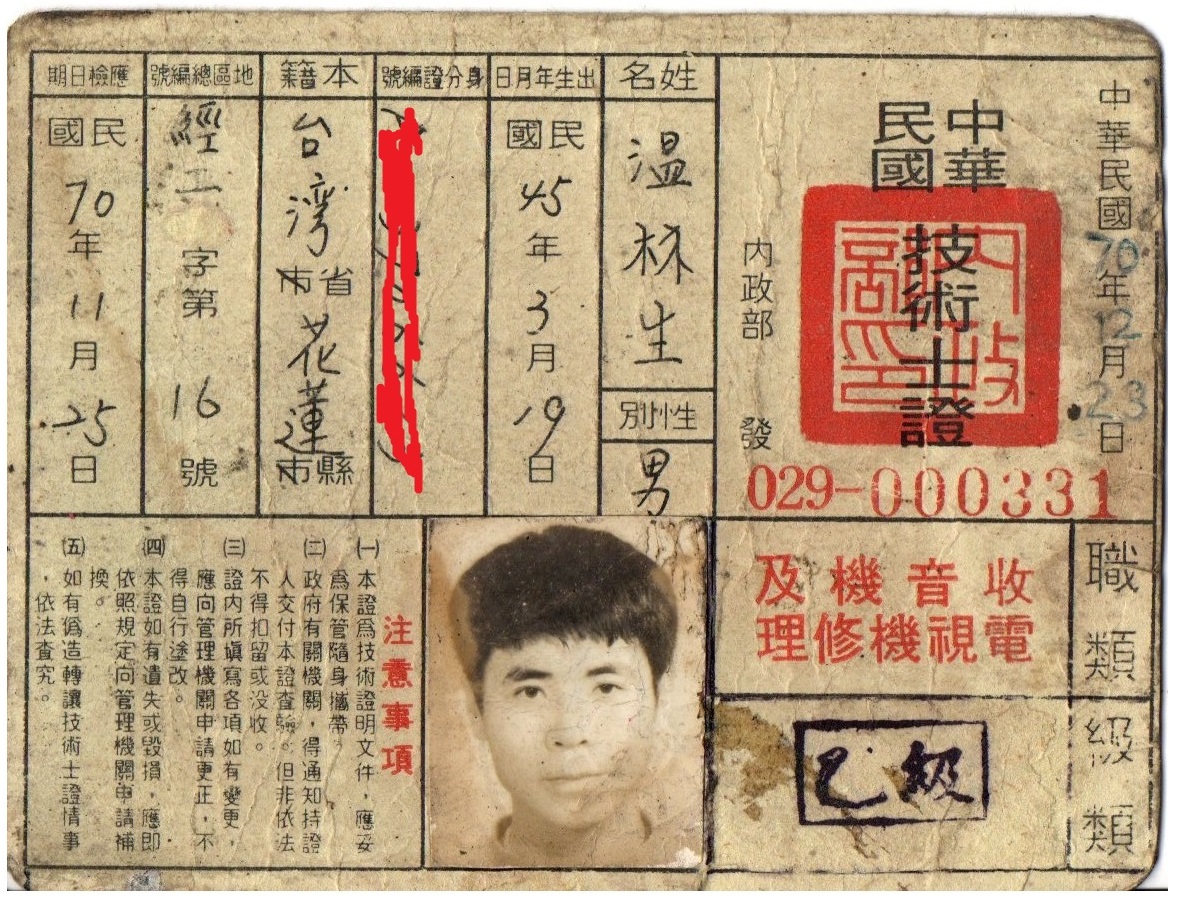 中華民國70年12月23日
中華
民國
技術士證
內政部 發
內政部印
029-000331
職類
收音機及
電視機修理
級類
乙級
姓名
温林生
性別
男
出生年月日
民國45年3月19日
身分證編號
本籍
台灣省市花蓮縣市
地區總編號
經工字第16號
應檢日期
民國70年11月25日
注意事項
㈠本證爲技術證明文件，應妥
爲保管隨身攜帶。
㈡政府有關機關，得通知持證
人交付本證查驗。但非依法
不得扣留或没收。
㈢證内所塡寫各項如有變更，
應向管理機關申請更正，不
得自行塗改。
㈣本證如有遺失或毀損，應即
依照規定向管理機關申請補
換。
㈤如有僞造轉讓技術士證情事
，依法查究。